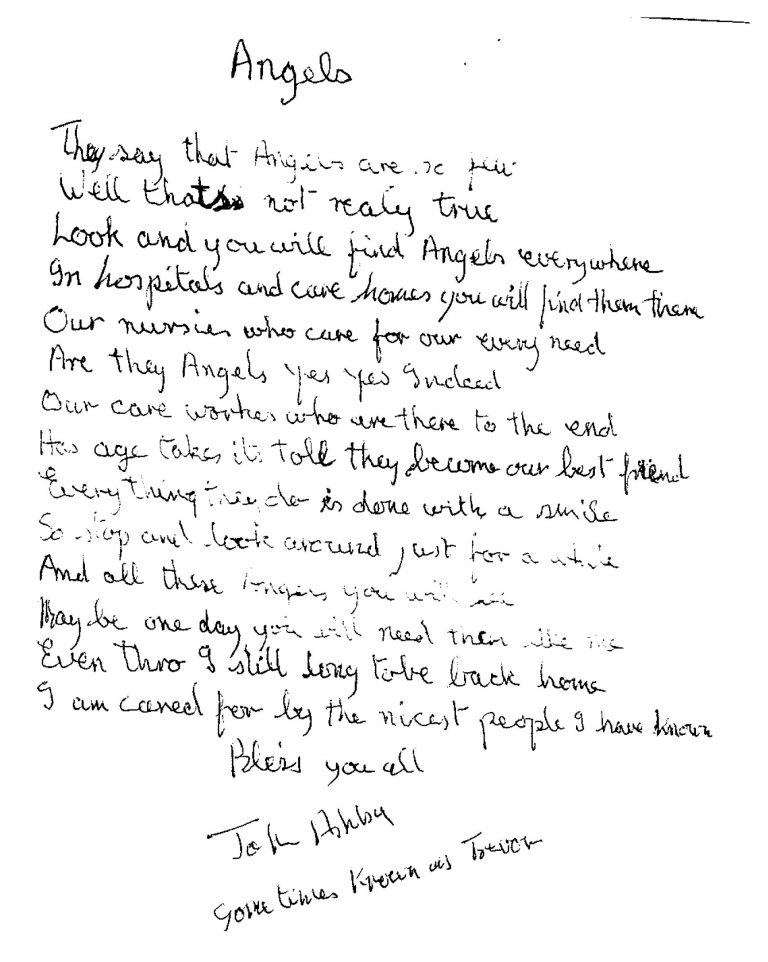 Angels
They say that Angels are so few
Well thats not realy true
Look and you will find Angels everywhere
In hospitals and care homes you will find them there
Our nursies who care for our every need
Are they Angels yes yes Indeed
Our care workes who are there to the end
Has age takes its toll they become our best friend
Everything they do is done with a smile
So stop and look around just for a while
And all these Angels you will see
May be one day you will need them like me
Even thro I still long to be back home
I am cared for by the nicest people I have known
Bless you all
John Ashby
Sometimes Known as Trevor